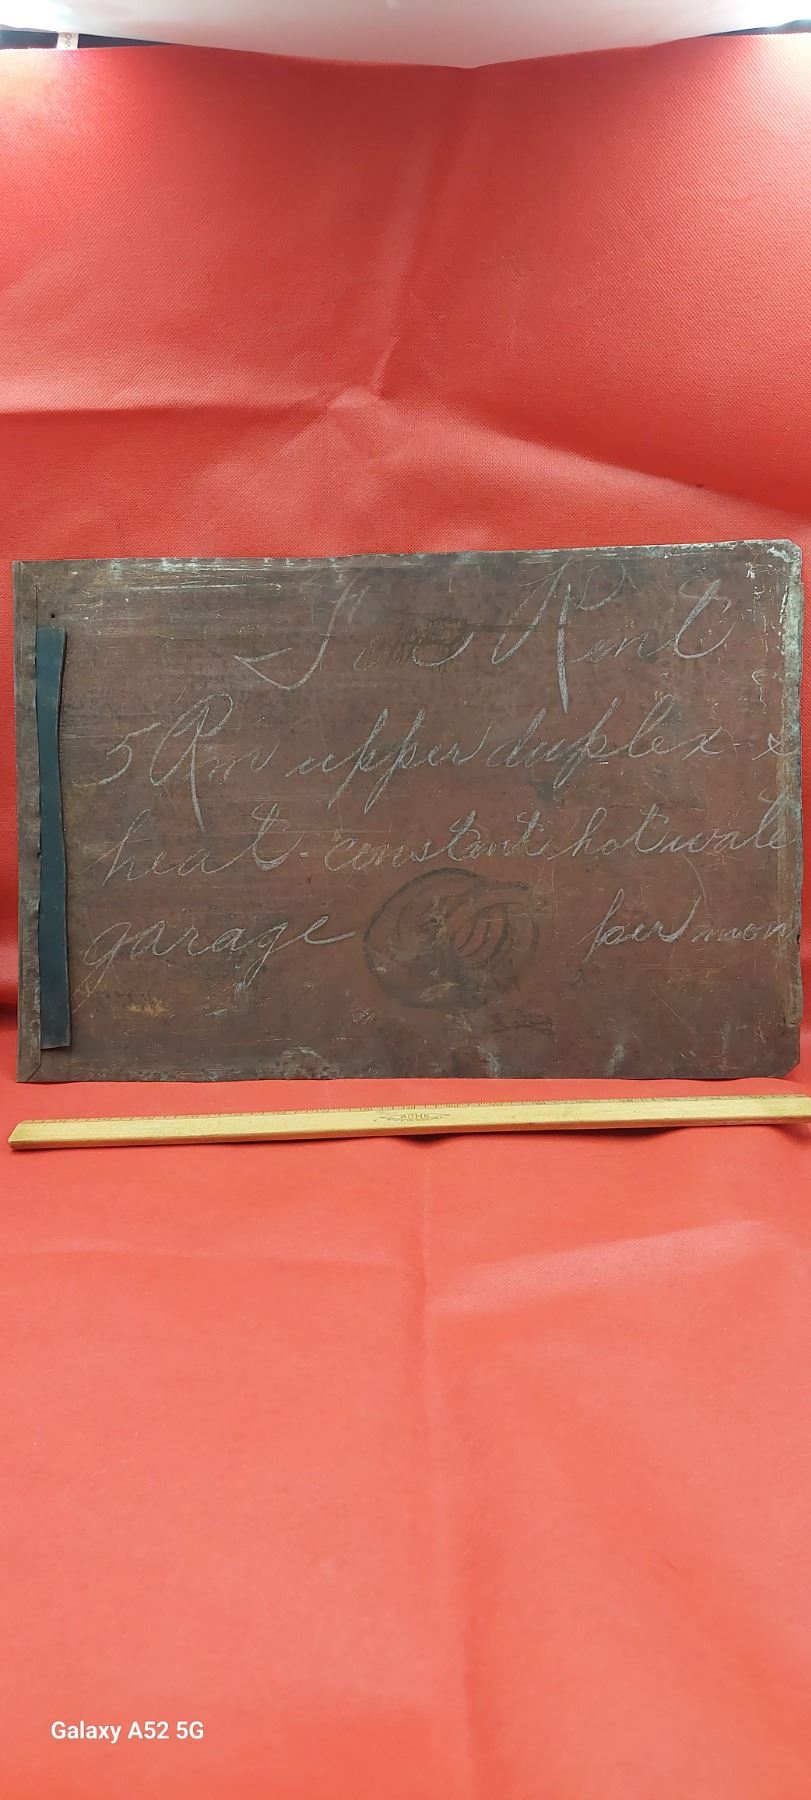 For Rent
5 Rm upper duplex - 
heat - constant hot wate
garage per mon
ACME
Galaxy A52 5G